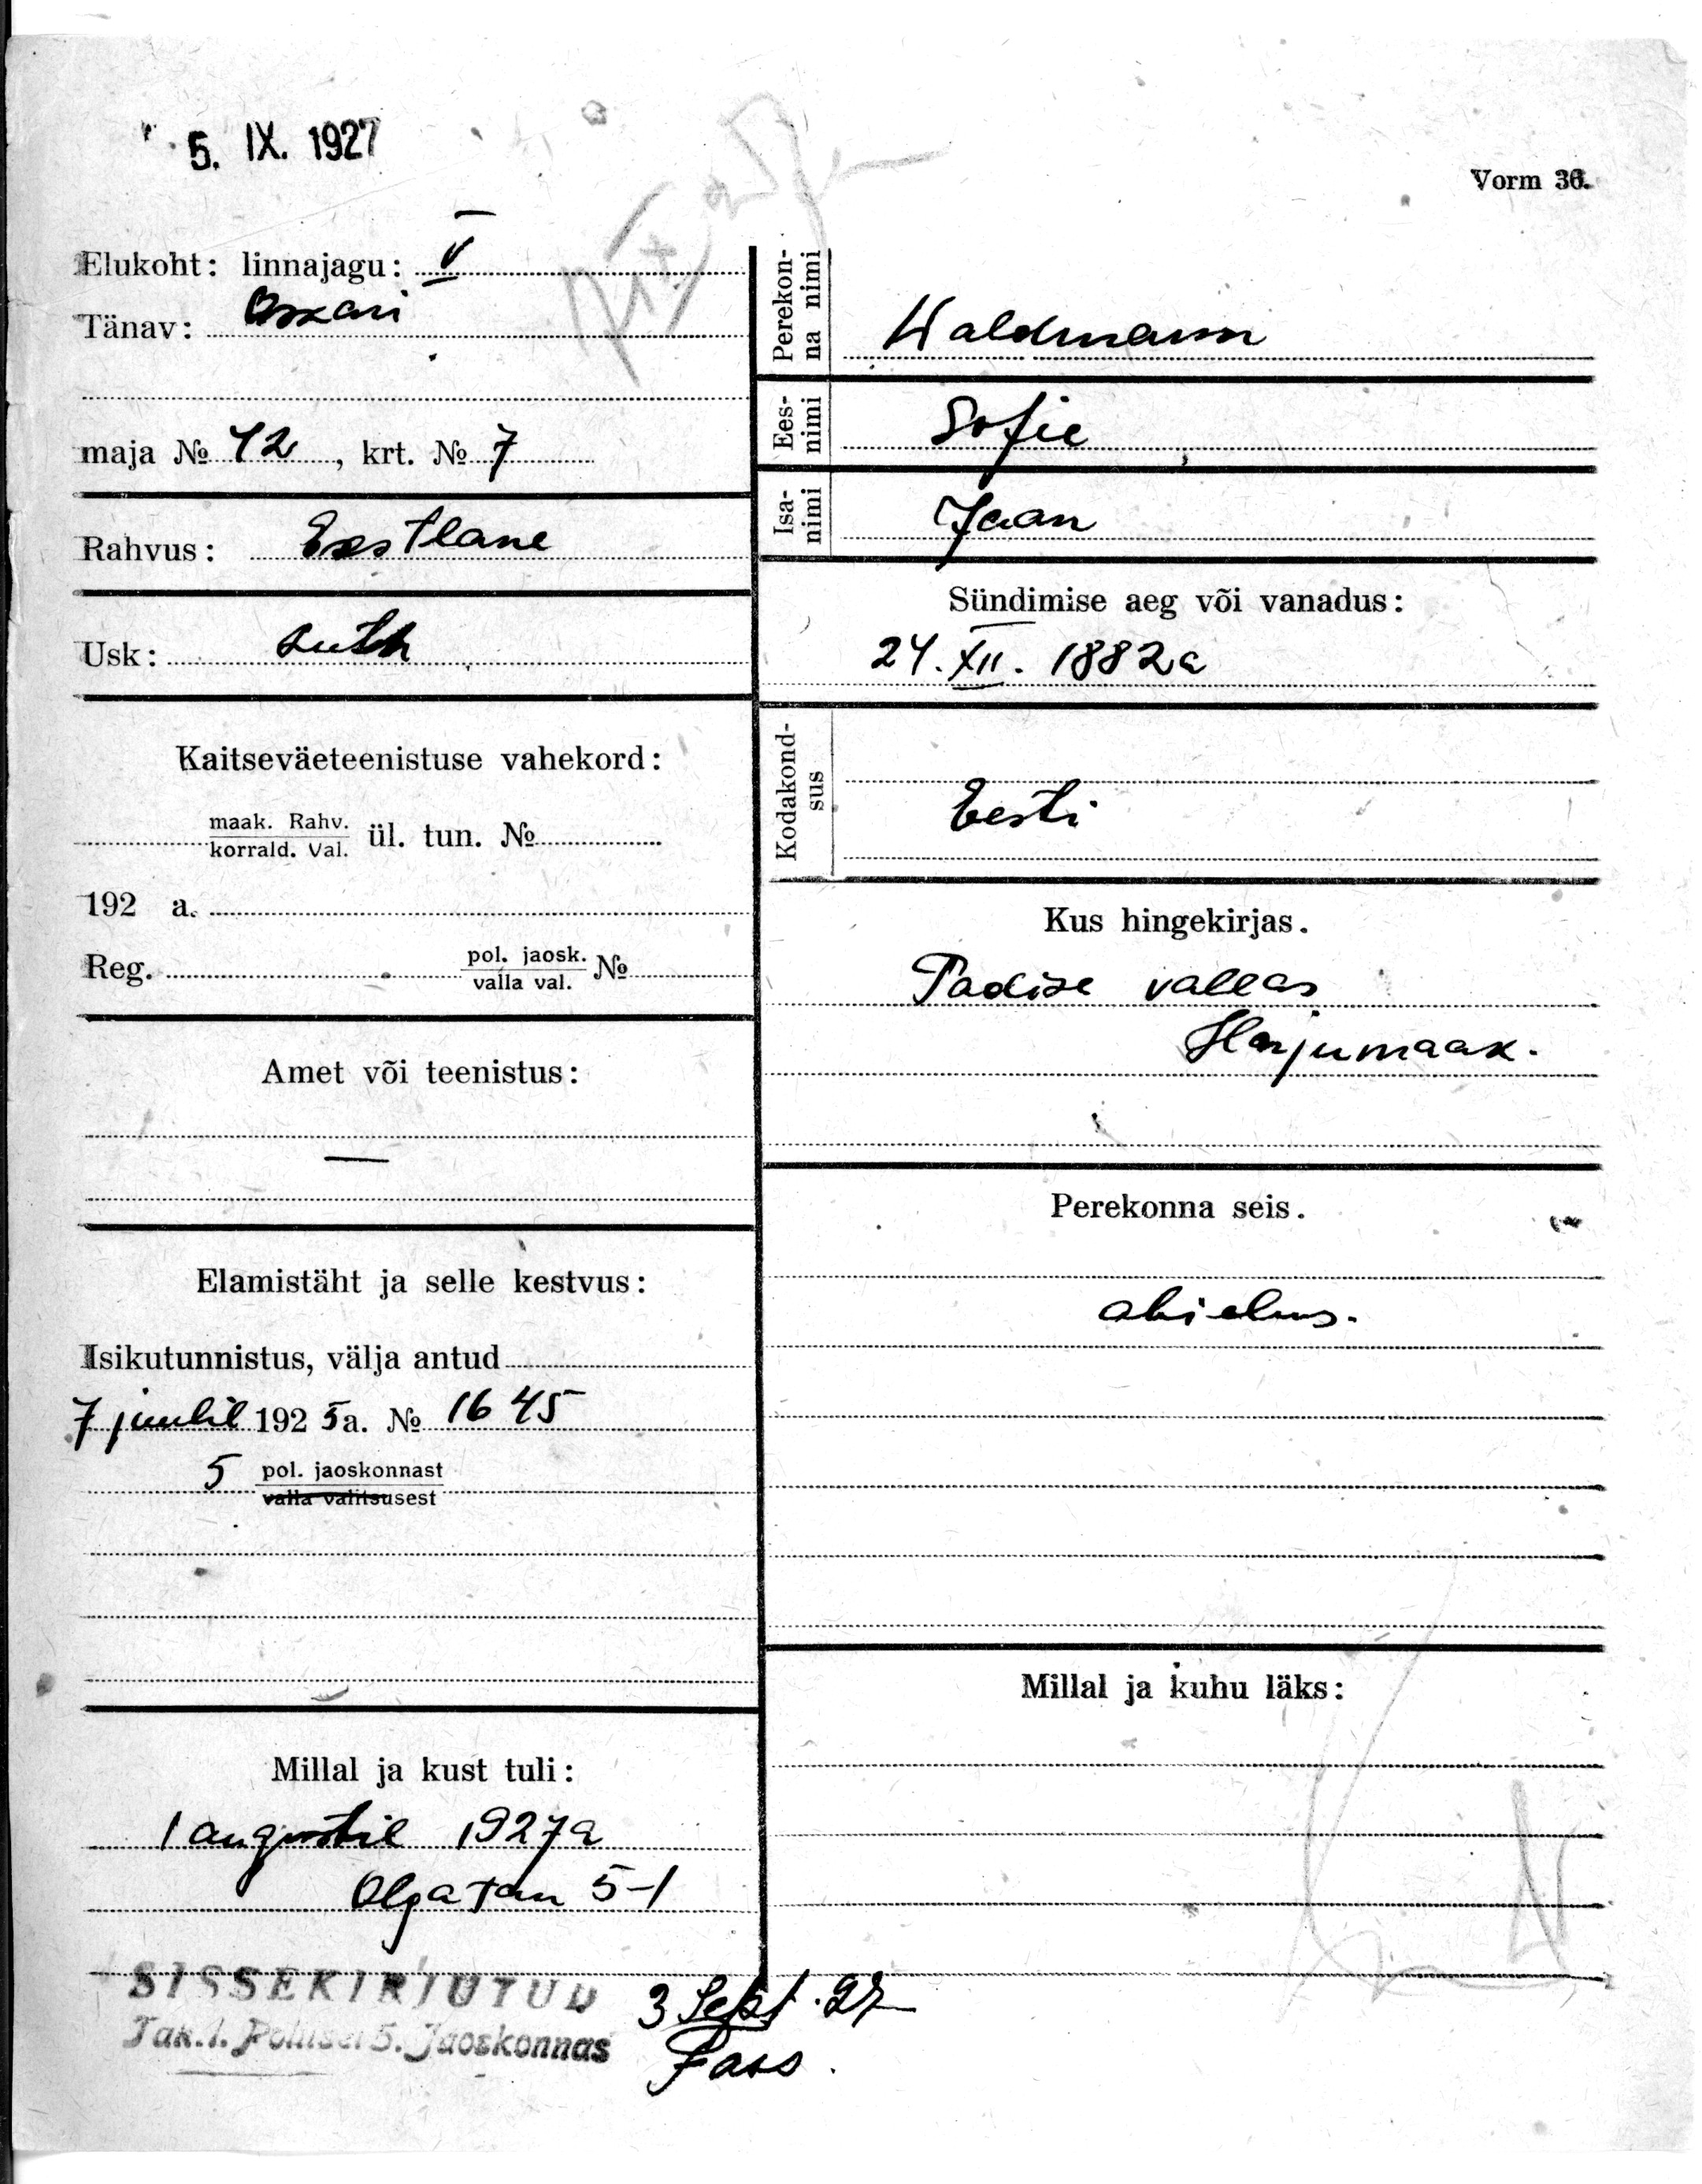 5. IX. 1927
Vorm 36.
Elukoht: linnajagu: V
Tänav: Oskari
maja № 12, krt. № 7
Rahvus: Eestlane
Usk: luth
Kaitseväeteenistuse vahekord:
maak. Rahv.
korrald. Val. ül. tun. №
192 a.
Reg. pol. jaosk.
valla val. №
Amet või teenistus:
—
Elamistäht ja selle kestvus:
Isikutunnistus, välja antud
7 juulil 1925 a. № 1645
5 pol. jaoskonnast
valla valitsusest
Millal ja kust tuli:
1 augustil 1927 a
Olga tän 5-1
SISSEKIRJUTUD
Tak. l. Politsei 5. Jaoskonnas
3 Sept. 27
Perekonna nimi
Waldmann
Eesnimi
Sofie
Isanimi
Jaan
Sündimise aeg või vanadus:
24. XII. 1882 a
Kodakondsus
Eesti
Kus hingekirjas.
Padise vallas
Harjumaak.
Perekonna seis.
abielus.
Millal ja kuhu läks: